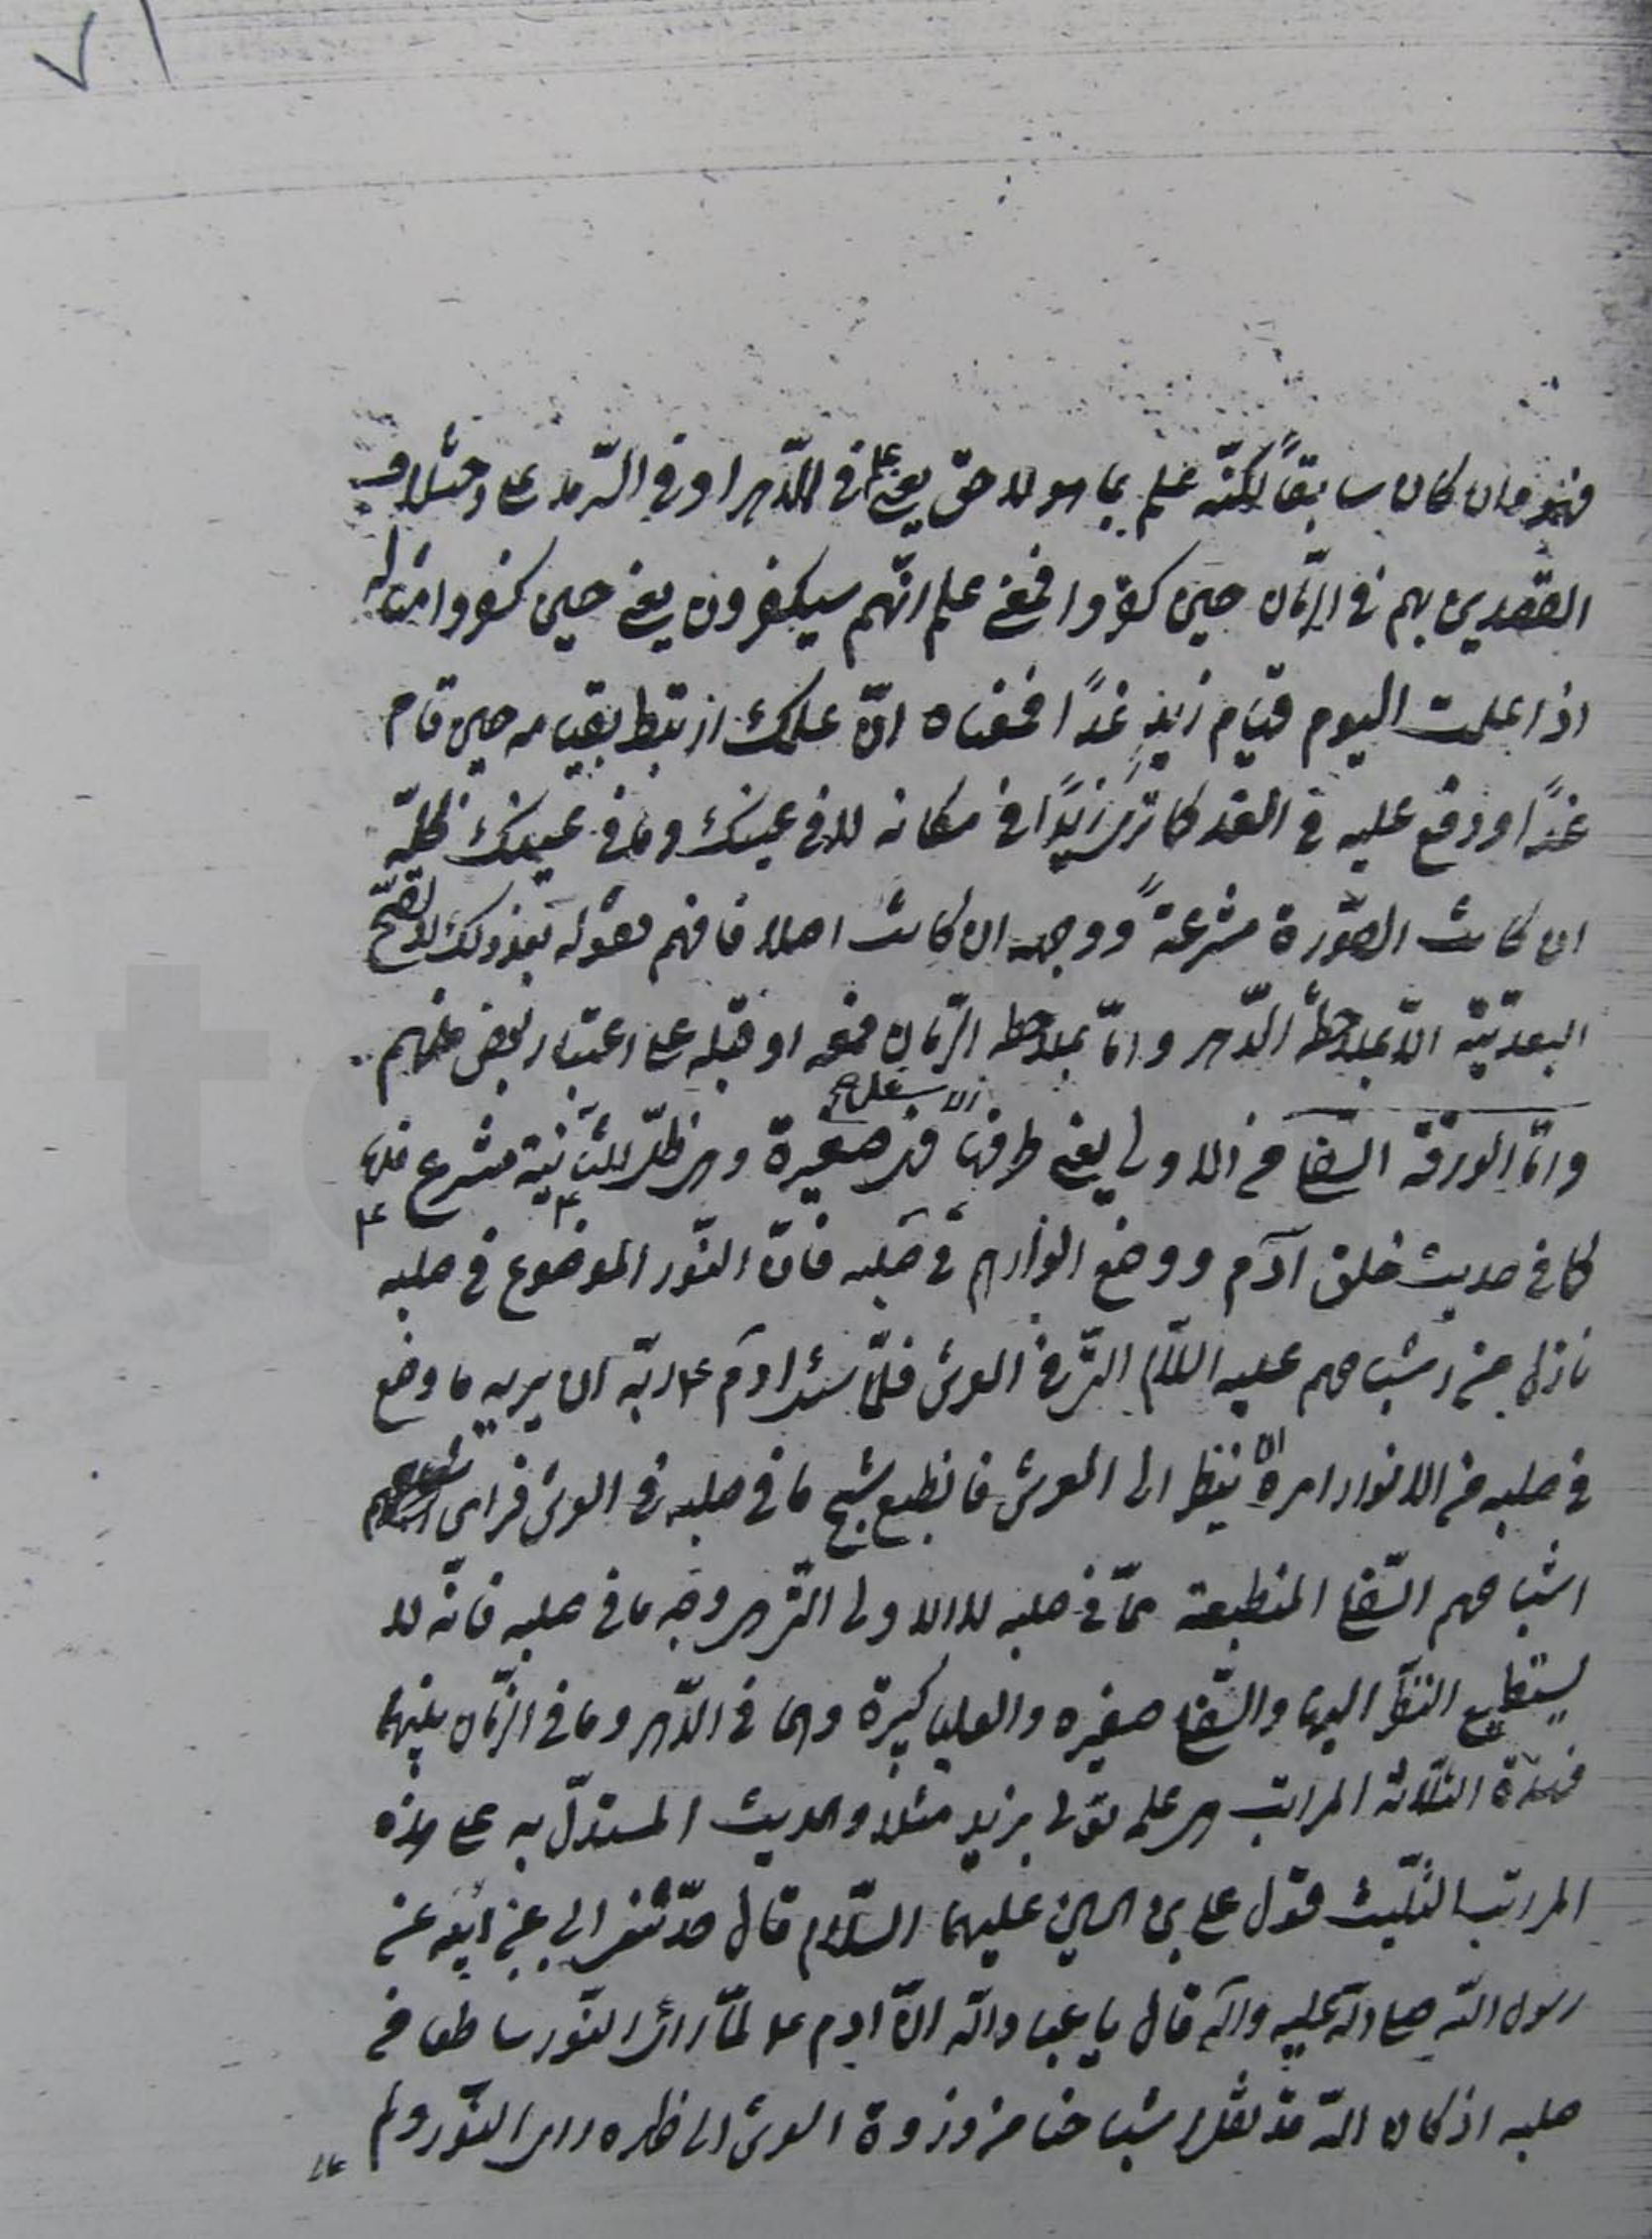 ٧١
فهو وان كان سابقاً لكنّه علم بما هو لاحق يعنى علم فى الدّهر او فى السّرمد على
التّقديرين بهم فى الزّمان حين كفروا فمعنى علم انّهم سيكفرون يعنى حين كفروا مثاله
اذا علمت اليوم قيام زيدٍ غدًا فمعناه انّ علمك ارتبط بقيامه حين قام
غدًا ووقع عليه فى الغد كما ترى زيدًا فى مكانه لا فى عينك وما فى عينك ظلّه
ان كانت الصّورة منتزعةً ووجهه ان كانت اصلا فافهم فقوله بعد ذلك لا تصحّ
البعديّة الّا بملاحظة الدّهر وامّا بملاحظة الزّمان فمعه او قبله على اعتبار بعض منهم
وامّا الورقة السّفلى من الاولى يعنى طرفها الاسفل فهى صغيرة وهى ظلّ للثّانية منتزع منها
كما فى حديث خلق آدم ع ووضع انوارهم ع فى صلبه فانّ النّور الموضوع فى صلبه
نازل من اشباحهم عليهم السّلام الّتى فى العرش فلمّا سئل آدم ع ربّه ان يريه ما وضع
فى صلبه من الانوار امره ان ينظر الى العرش فانطبع شبح ما فى صلبه فى العرش فراى
اشباحهم السّفلى المنطبعة ممّا فى صلبه لا الاولى الّتى هى وجه ما فى صلبه فانّه لا
يستطيع النّظر اليها والسّفلى صغيره والعليا كبيرة وهما فى الدّهر وما فى الزّمان بينهما
فهذه الثّلاثة المراتب هى علمه تعالى بزيد مثلا والحديث المستدلّ به على هذه
المراتب الثّلث قول على بن الحسين عليهما السّلام قال حدّثنى ابى عن ابيه عن
رسول اللّه صلى اللّه عليه وآله قال يا عباد اللّه انّ ادم ع لمّا راى النّور ساطعا من
صلبه اذ كان اللّه قد نقل اشباحنا من ذروة العرش الى ظهره راى النّور ولم